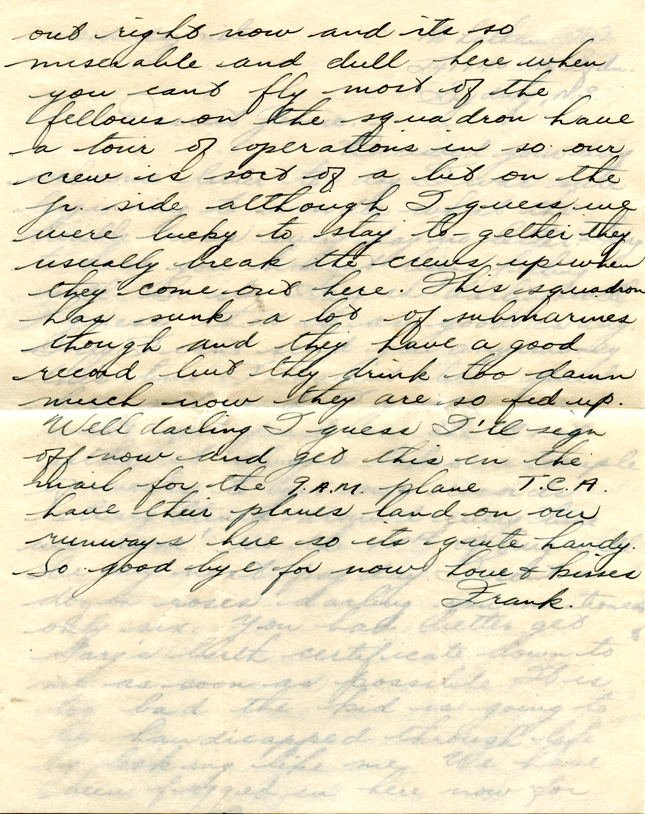 out right now and its so
miserable and dull here when
you cant fly most of the
fellows on the squadron have
a tour of operations in so our
crew is sort of a bit on the
jr. side although I guess we
were lucky to stay to-gether they
usually break the crews up when
they come out here. This squadron
has sunk a lot of submarines
though and they have a good
record but they drink too damn
much now they are so fed up.
Well darling I guess I'll sign
off now and get this in the
mail for the 9 A.M. plane T.C.A.
have their planes land on our
runways here so its quite handy.
So good bye for now love & kisses
Frank.